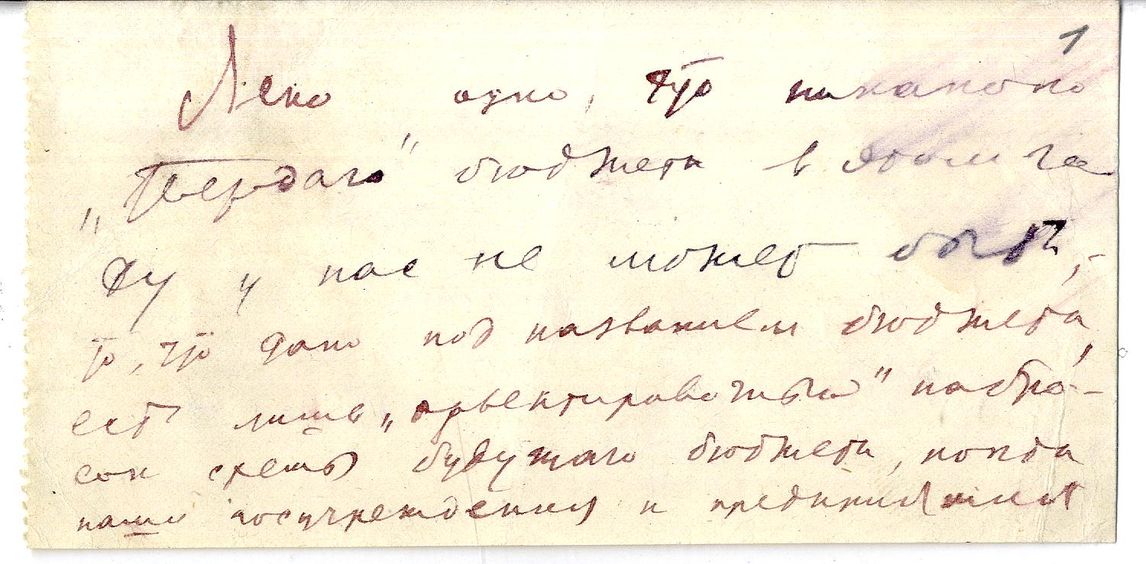 1
Ясно одно, что никакого
„твердаго" бюджета в этом го
ду у нас не может быть, -
то, что дано под названием бюджета,
есть лишь „орьентировочный" набро-
сок схемы будущаго бюджета, когда
наши госучреждения и предприятия